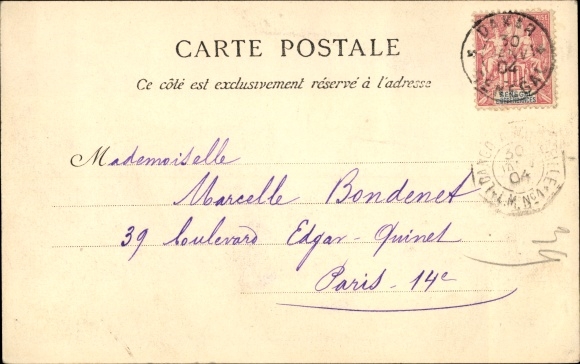 CARTE POSTALE
Ce côté est exclusivement réservé à l'adresse
DAKAR
30
04
SÉNÉGAL
Mademoiselle
Marcelle Bondenet
39 boulevard Edgar-Quinet
Paris - 14e
30
04
L.M. Nº1